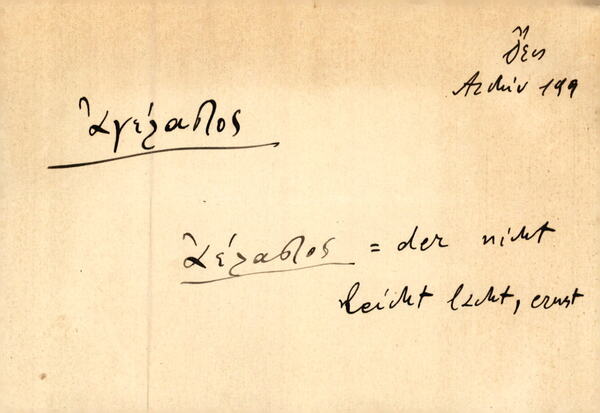 Archiv 199
Ἀγέλαστος
Ἀέλαστος = der nicht
leicht lacht, ernst